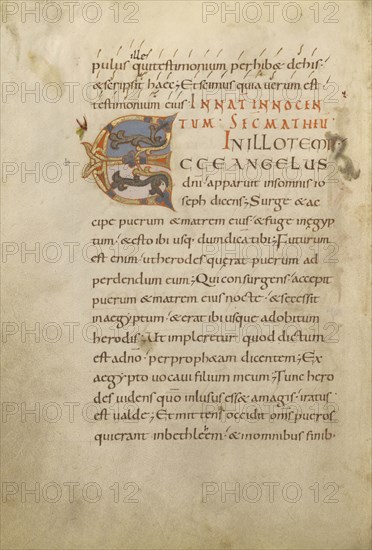 ille
pulus qui testimonium perhib& dehis ·
& scripsit haec ; Et scimus quia verum est
testimonium eius IN NAT INNOCEN
TUM · SEC MATHEU
IN ILLO TEM
ECCE ANGELUS
dni · apparuit insomnis io
seph dicens ; Surge & ac
cipe puerum & matrem eius · & fuge inęgyp
tum · & esto ibi usq · dum dica tibi ; Futurum
est enim · ut herodes quęrat puerum ad
perdendum eum ; Qui consurgens · accepit
puerum & matrem eius nocte · & secessit
in aegyptum · & erat ibi usque ad obitum
herodis ; Ut impleretur quod dictum
est adno · per proph&am dicentem ; Ex
aegypto vocavi filium meum ; Tunc hero
des videns quo inlusus ess& a magis · iratus
est valde ; Et mittens occidit oms pueros
qui erant in bethleem · & in omnibus finib ·
PHOTO 12